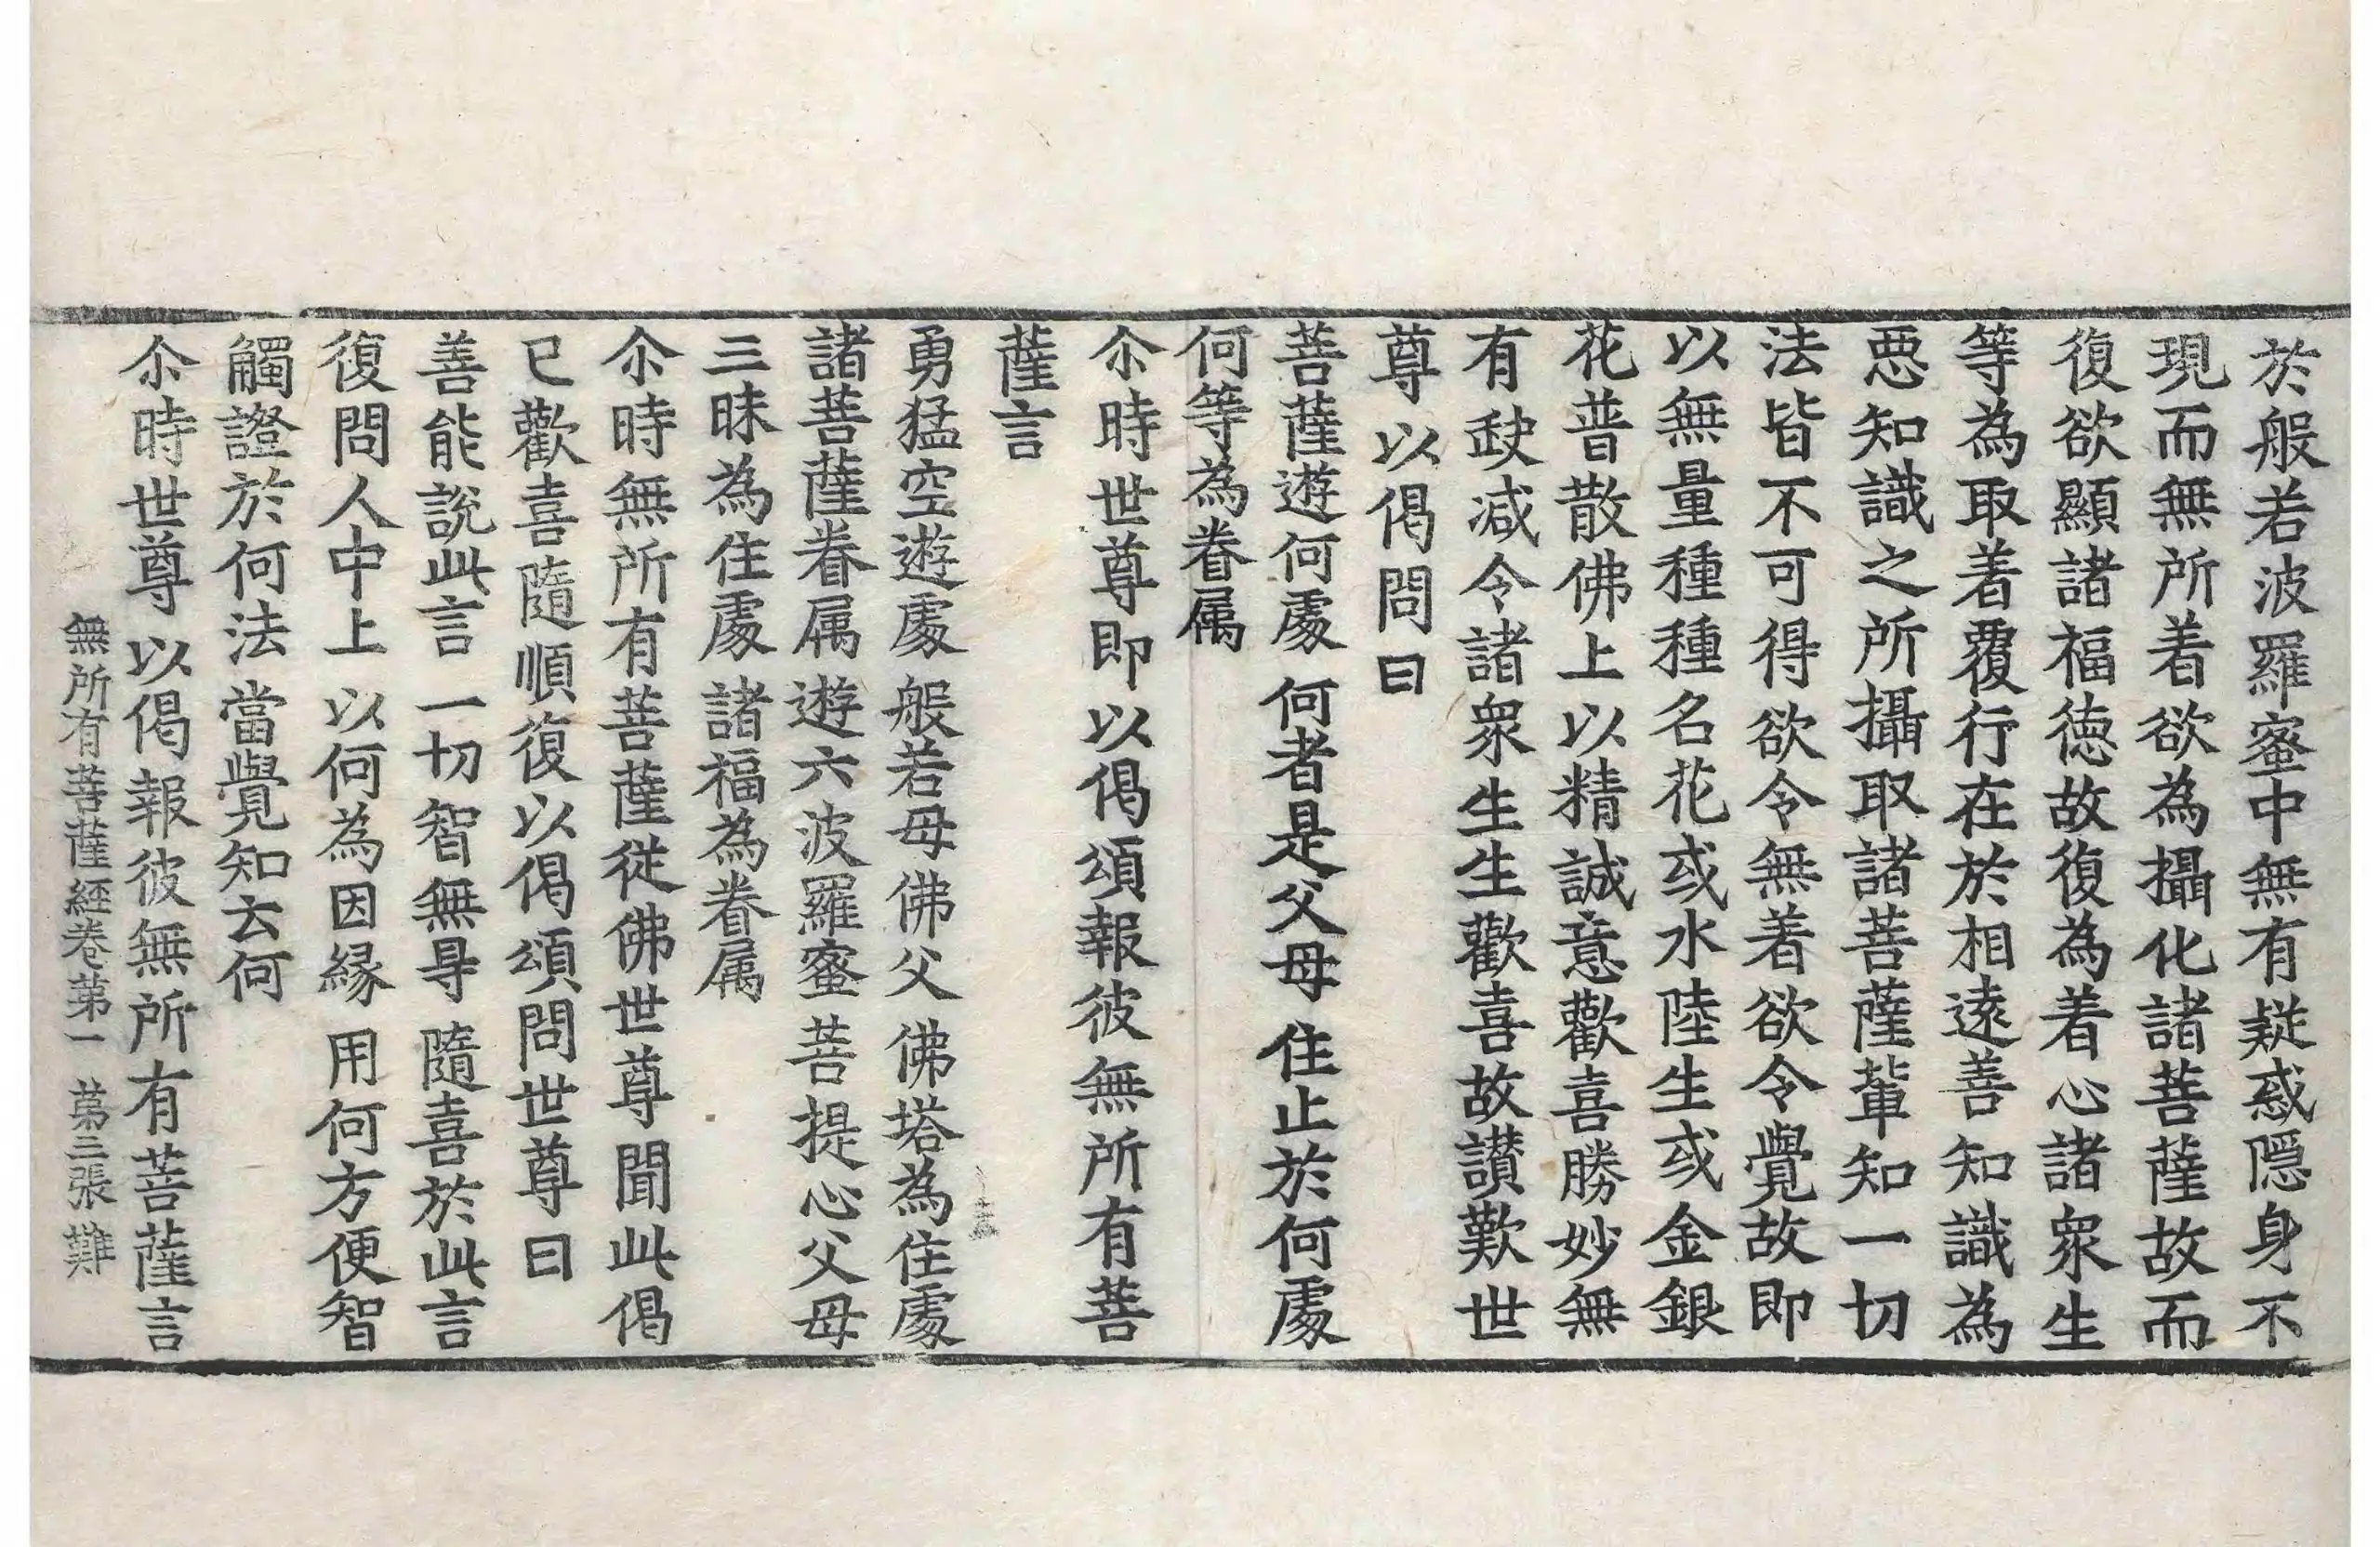 於般若波羅蜜中無有疑惑隱身不
現而無所着欲為攝化諸菩薩故而
復欲顯諸福徳故復為着心諸衆生
等為取着覆行在於相遠善知識為
惡知識之所攝取諸菩薩輩知一切
法皆不可得欲令無著欲令覺故即
以無量種種名花或水陸生或金銀
花普散佛上以精誠意歡喜勝妙無
有缺减令諸衆生生歡喜故讃歎世
尊以偈問曰
菩薩遊何處 何者是父母 住止於何處
何等為眷属
尒時世尊即以偈頌報彼無所有菩
薩言
勇猛空遊處 般若母佛父 佛塔為住處
諸菩薩眷属 遊六波羅蜜 菩提心父母
三昧為住處 諸福為眷属
尒時無所有菩薩從佛世尊聞此偈
已歡喜隨順復以偈頌問世尊曰
善能說此言 一切智無㝵 隨喜於此言
復問人中上 以何為因縁 用何方便智
觸證於何法 當覺知云何
尒時世尊以偈報彼無所有菩薩言
無所有菩薩經卷第一 第三張 難